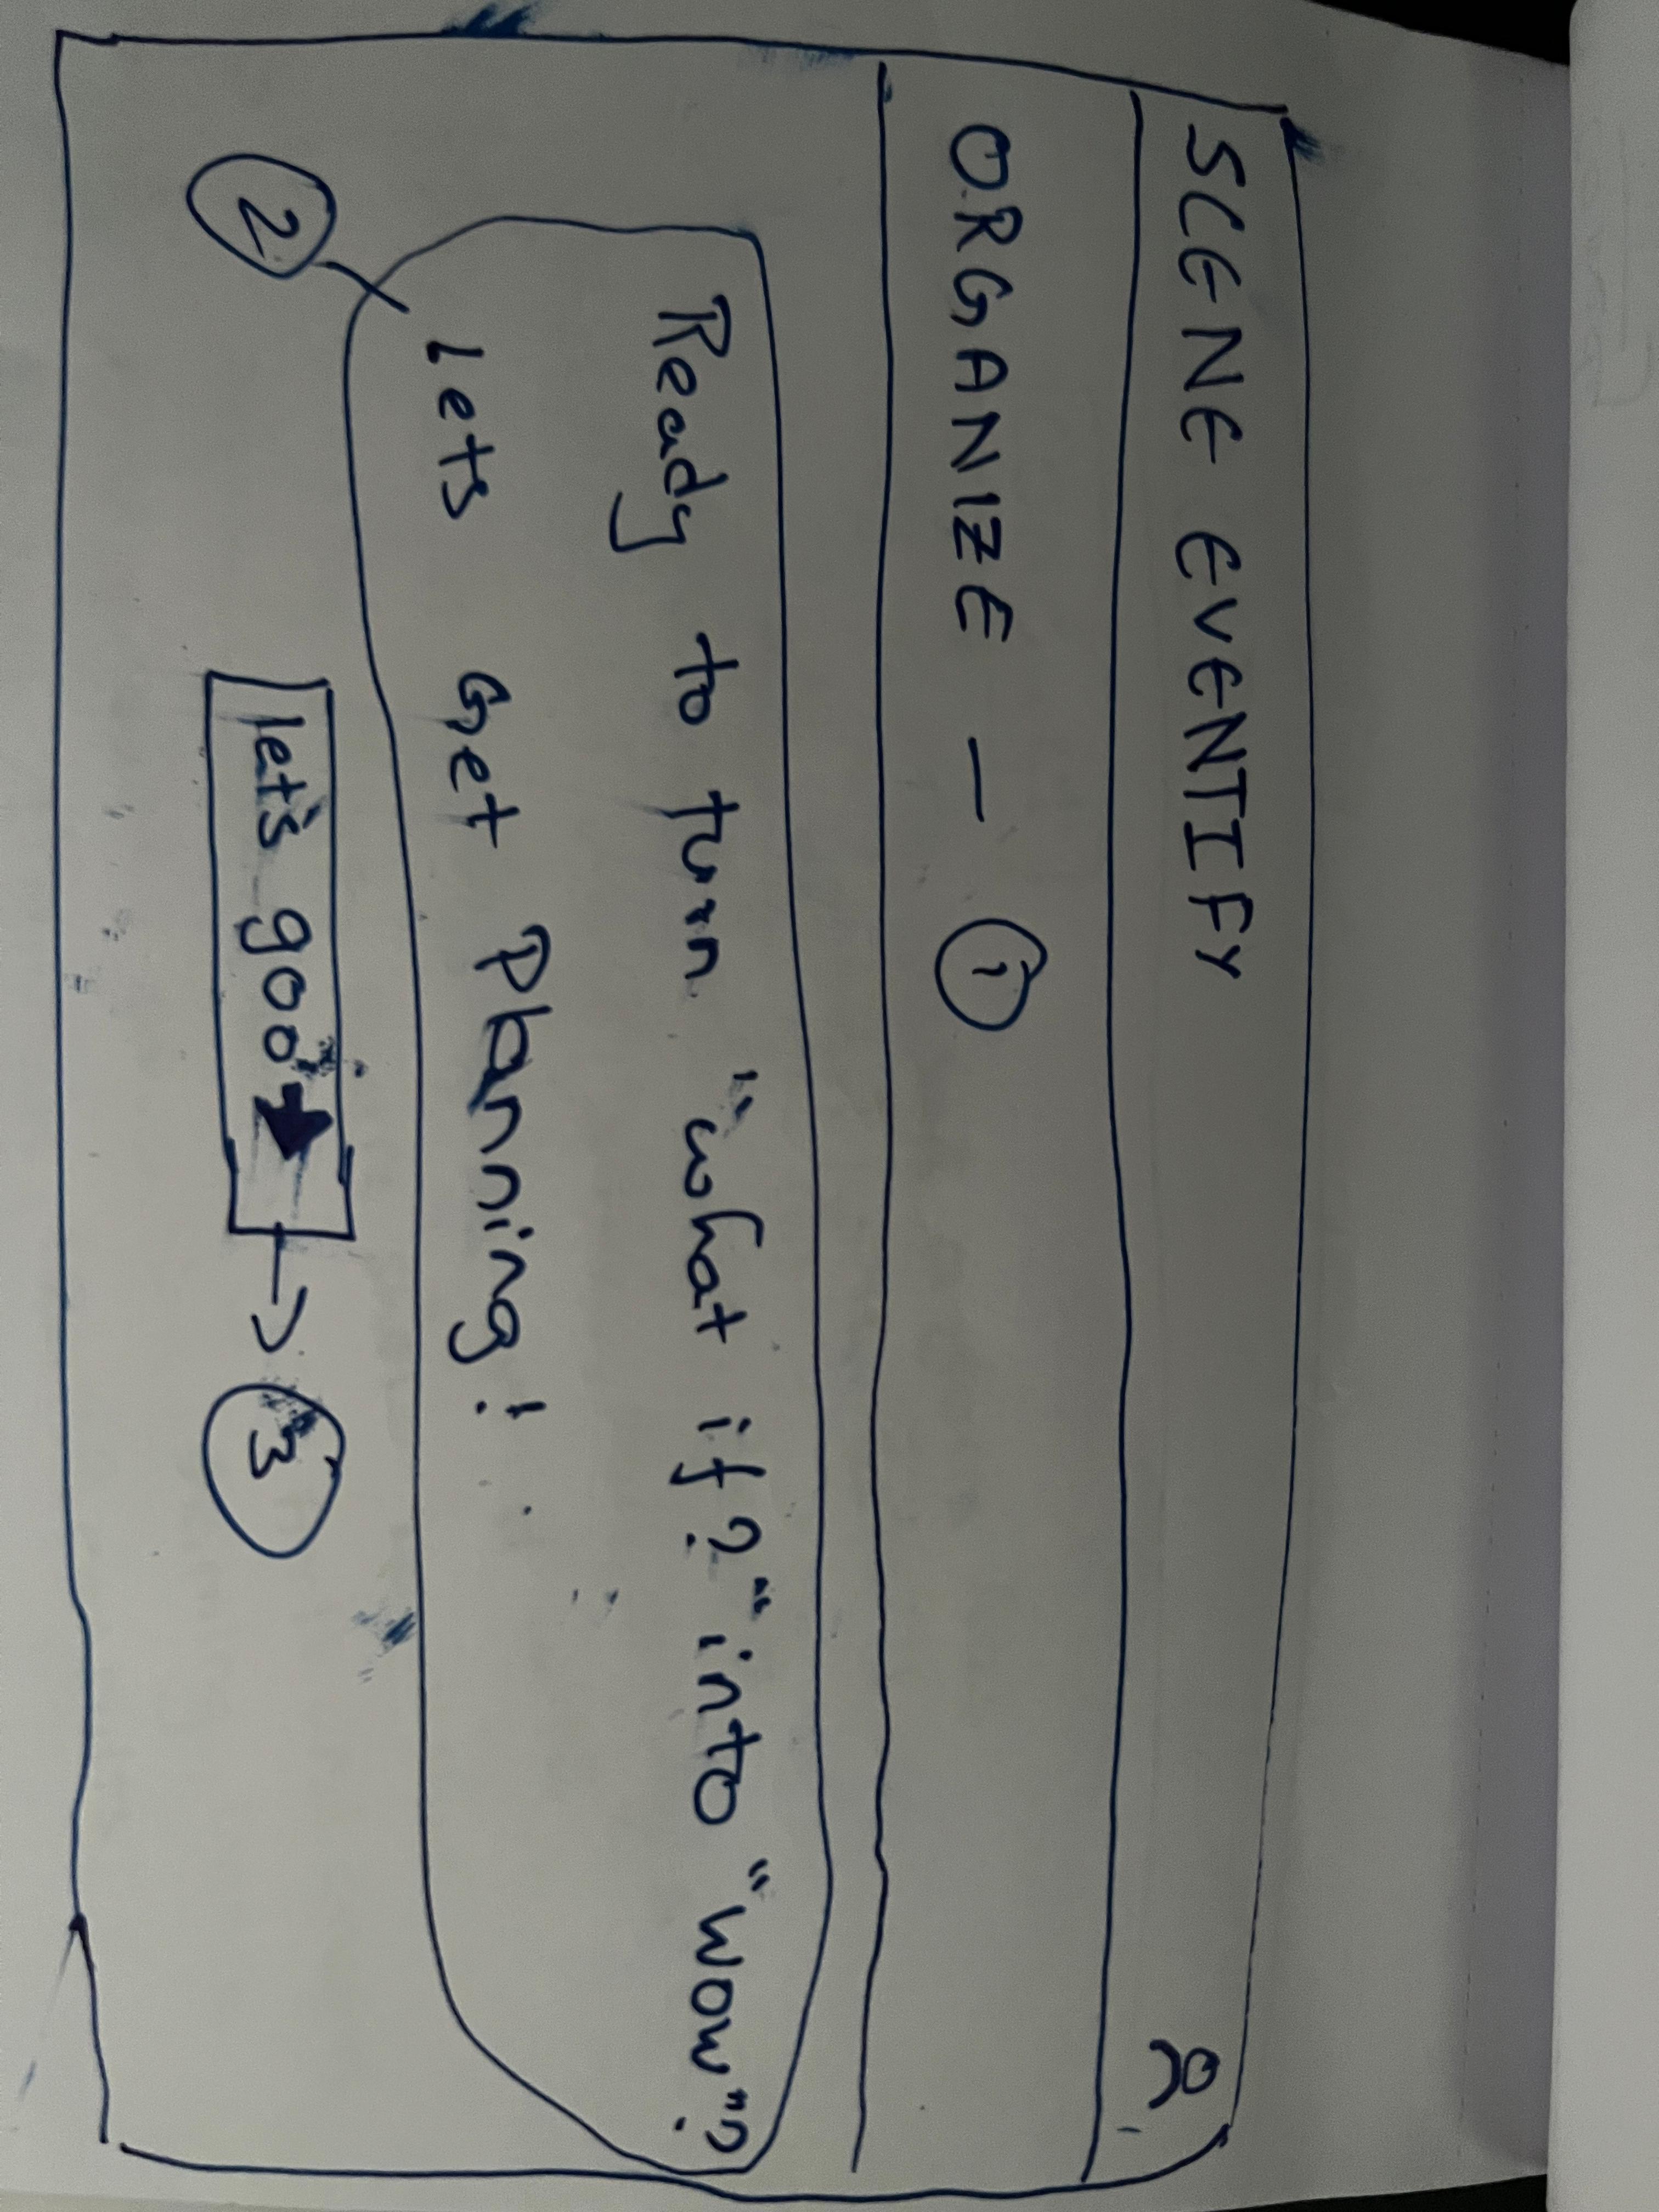 SCENE EVENTIFY
ORGANIZE — 1
Ready to turn "what if?" into "wow"?
Lets Get Planning!
2
let's goo → 3